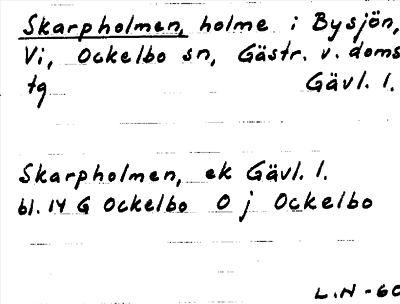 Skarpholmen, holme i Bysjön,
Vi, Ockelbo sn, Gästr. v. doms
tg Gävl. l.
Skarpholmen, ek Gävl. l.
bl. 14 G Ockelbo O j Ockelbo
L.N-60